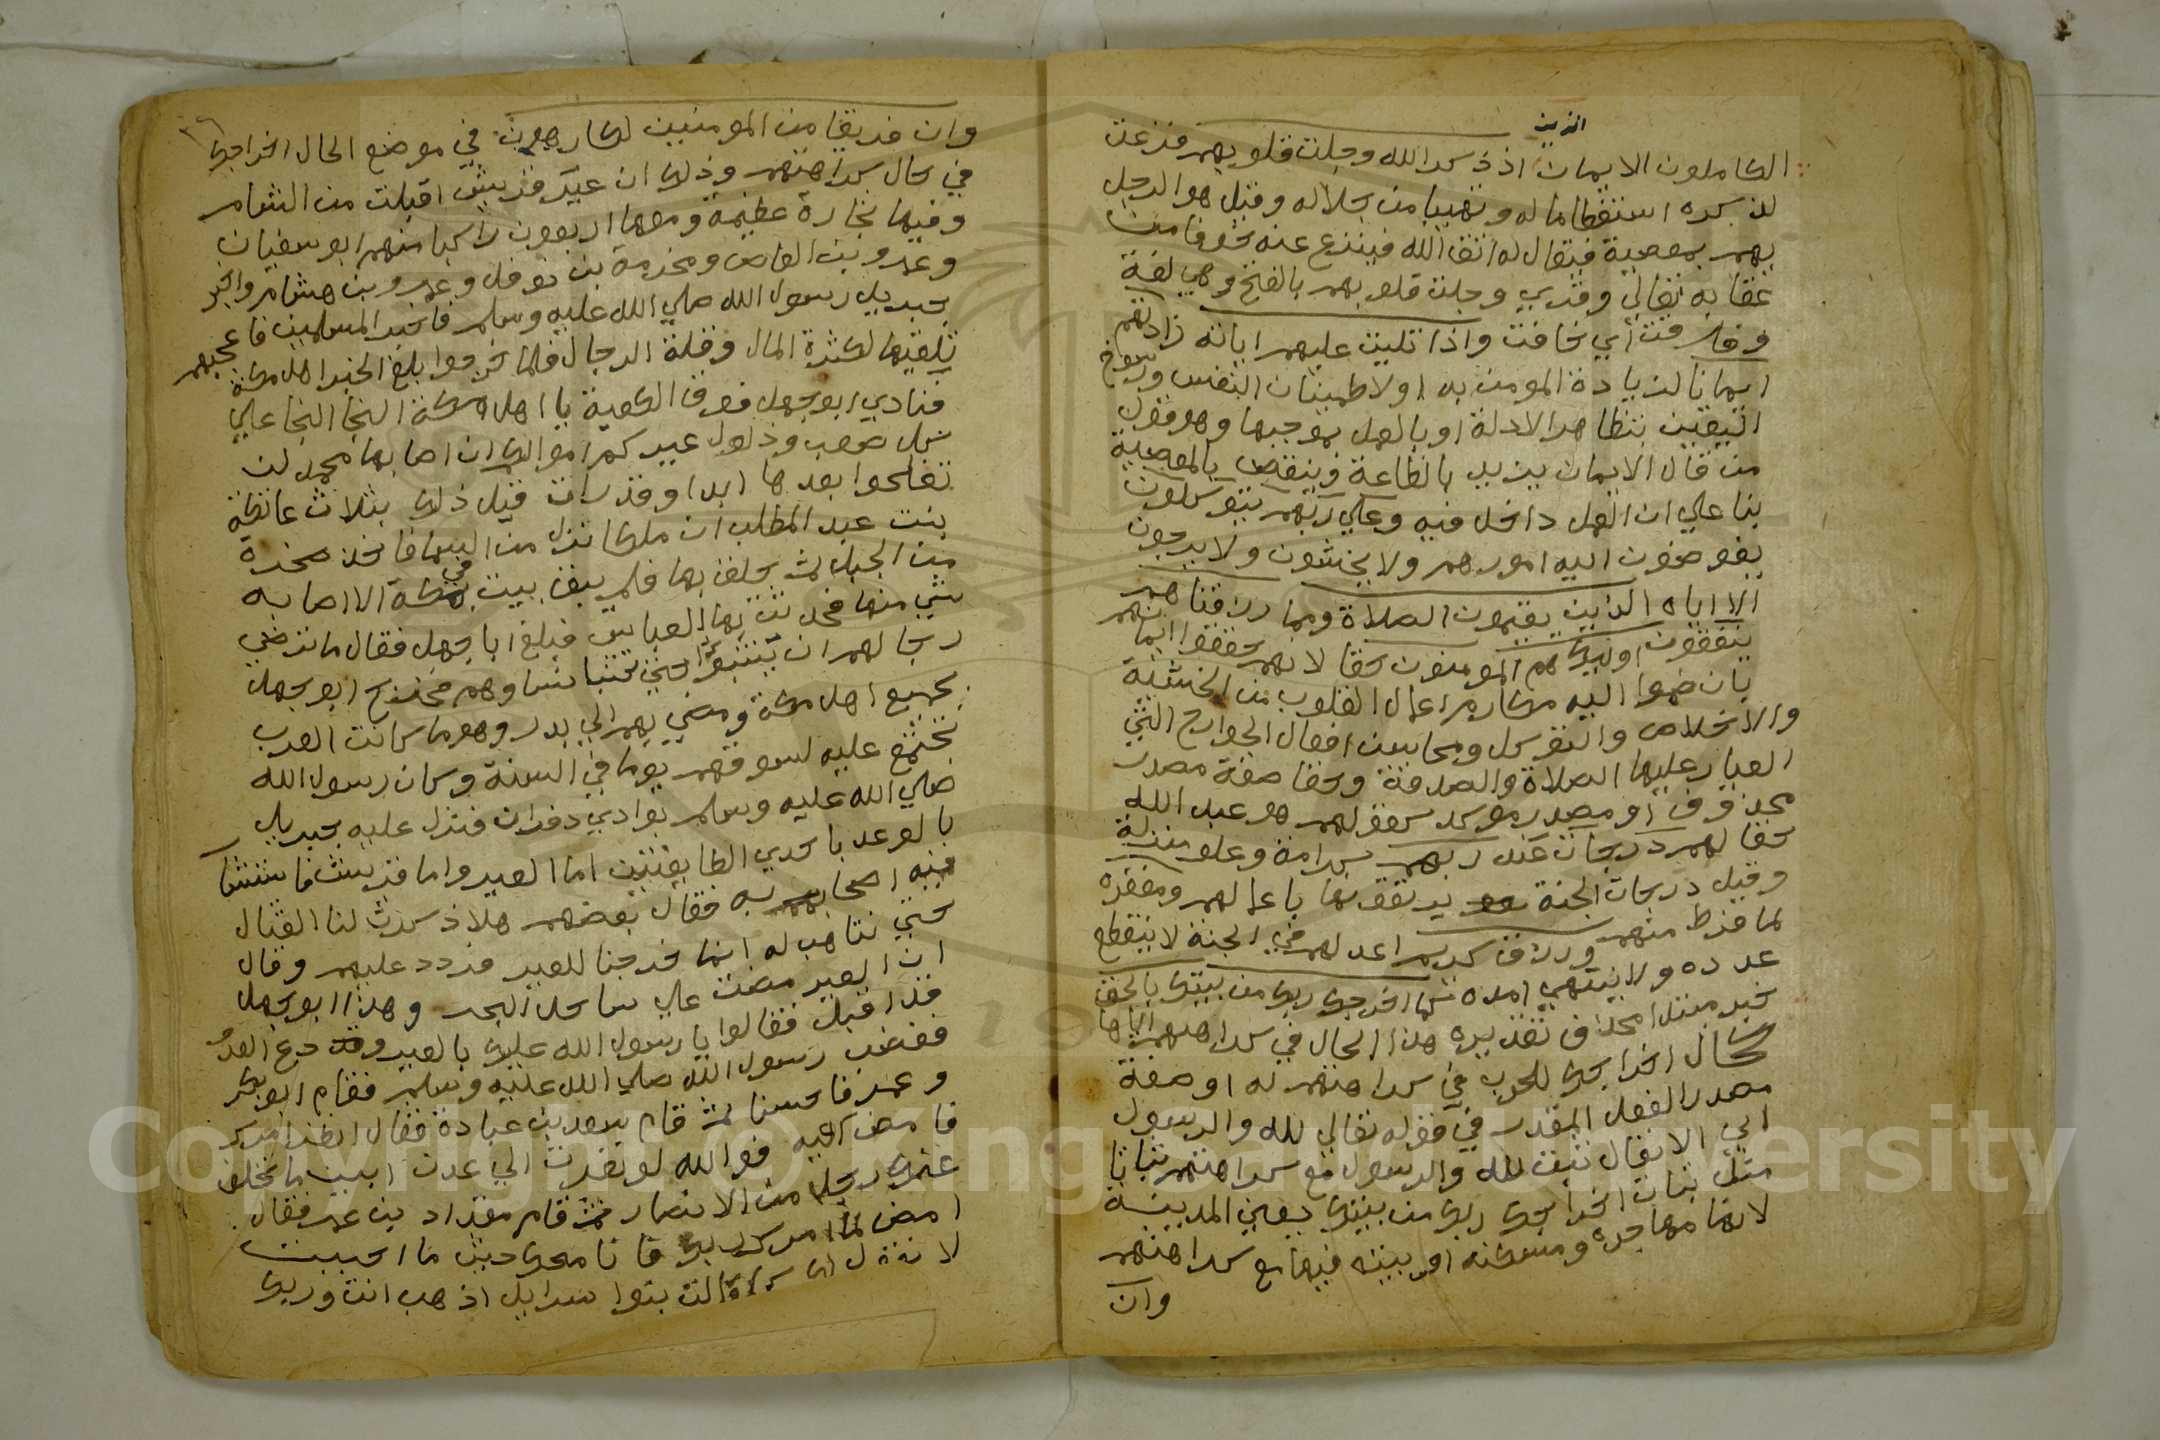 الذين
الكاملون الايمان اذا ذكر الله وجلت قلوبهم فزعت
لذكره استعظاما له وتهيبا من جلاله وقيل هو الرجل
يهم بمعصية فيقال له اتق الله فينزع عنه خوفا من
عقابه تعالي وقري وجلت قلوبهم بالفتح وهي لغة
وفرقت أي خافت واذا تليت عليهم اياته زادتهم
ايمانا لزيادة المومن به او لاطمينان النفس ورسوخ
اليقين بتظاهر الادلة او بالعمل بموجبها وهو قول
من قال الايمان يزيد بالطاعة وينقص بالمعصية
بنا علي ان العمل داخل فيه وعلي ربهم يتوكلون
يفوضون اليه امورهم ولا يخشون ولا يرجون
الا اياه الذين يقيمون الصلاة ومما رزقناهم
ينفقون اوليك هم المومنون حقا لانهم حققوا ايمانهم
بان ضموا اليه مكارم اعمال القلوب من الخشية
والاخلاص والتوكل ومحاسن افعال الجوارح التي
العيار عليها الصلاة والصدقة وحقا صفة مصدر
محذوف أو مصدر موكد كقولهم هو عبد الله
حقا لهم درجات عند ربهم كرامة وعلو منزلة
وقيل درجات الجنة يرتقونها باعمالهم ومغفرة
لما فرط منهم ورزق كريم اعد لهم في الجنة لا ينقطع
عدده ولا ينتهي امده كما اخرجك ربك من بيتك بالحق
خبر مبتدا محذوف تقديره هذا الحال في كراهتهم اياها
كحال اخراجك للحرب في كراهتهم له او صفة
مصدر الفعل المقدر في قوله تعالي لله والرسول
اي الانفال ثبتت لله والرسول مع كراهتهم ثباتا
مثل ثبات اخراجك ربك من بيتك يعني المدينة
لانها مهاجره ومسكنه او بيته فيها مع كراهتهم
وان
وان فريقا من المومنين لكارهون في موضع الحال اخرجك
في حال كراهتهم وذلك ان عير قريش اقبلت من الشام
وفيها تجارة عظيمة ومعها اربعون راكبا منهم ابو سفيان
وعمرو بن العاص ومخرمة بن نوفل وعمرو بن هشام واخبر
جبريل رسول الله صلي الله عليه وسلم فاخبر المسلمين فاعجبهم
تلقيها لكثرة المال وقلة الرجال فلما خرجوا بلغ الخبر اهل مكة
فنادي ابو جهل فوق الكعبة يا اهل مكة النجا النجا علي
كل صعب وذلول عيركم اموالكم ان اصابها محمد لن
تفلحوا بعدها ابدا وقد رات قبل ذلك بثلاث عاتكة
بنت عبد المطلب ان ملكا نزل من السما فاخذ صخرة
من الجبل ثم حلق بها فلم يبق بيت في مكة الا اصابه
شي منها فحدثت بها العباس فبلغ ابا جهل فقال ما ترضي
رجالهم ان يتنبوا حتي تتنبا نساوهم فخرج ابو جهل
بجميع اهل مكة ومضي بهم الي بدر وهو ما كانت العرب
تجتمع عليه لسوقهم يوما في السنة وكان رسول الله
صلي الله عليه وسلم بوادي دفران فنزل عليه جبريل
بالوعد باحدي الطايفتين اما العير واما قريش فاستشار
فيه اصحابه فقال بعضهم هلا ذكرت لنا القتال
حتي نتاهب له انما خرجنا للعير فردد عليهم وقال
ان العير مضت علي ساحل البحر وهذا ابو جهل
قد اقبل فقالوا يا رسول الله عليك بالعير ودع العدو
فغضب رسول الله صلي الله عليه وسلم فقام ابو بكر
وعمر فاحسنا ثم قام سعد بن عبادة فقال انظر امرك
فامض فيه فوالله لو سرت الي عدن ابين ما تخلف
عنك رجل من الانصار ثم قام مقداد بن عمر فقال
امض لما امرك ربك فانا معك حيث ما احببت
لا نقول لك كما قالت بنوا اسرايل اذهب انت وربك
Copyright © King Saud University